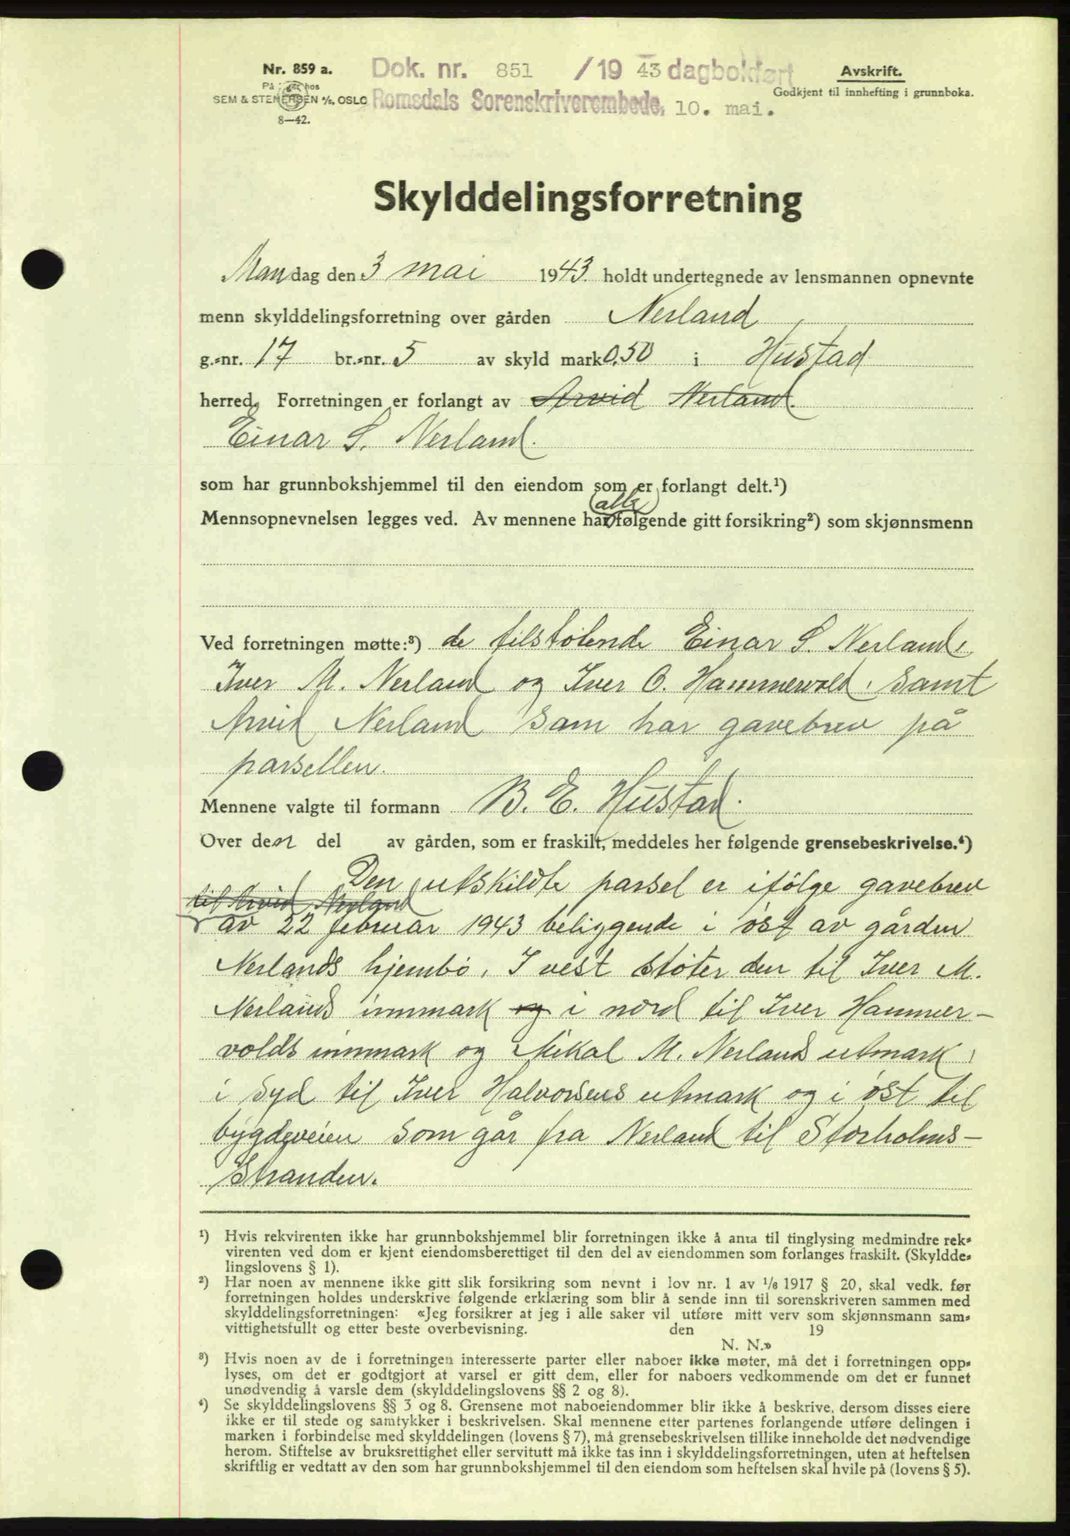 Nr. 859 a.
På lager hos
SEM & STENERSEN A/S, OSLO
8—42.
Dok. nr. 851 /19 43 dagbokført
Romsdals Sorenskriverembede, 10. mai.
Avskrift.
Godkjent til innhefting i grunnboka.
Skylddelingsforretning
Mandag den 3 mai 1943 holdt undertegnede av lensmannen opnevnte
menn skylddelingsforretning over gården Nerland
g.-nr. 17 br.-nr. 5 av skyld mark 0.50 i Hustad
herred. Forretningen er forlangt av Arvid Nerland.
Einar S. Nerland.
som har grunnbokshjemmel til den eiendom som er forlangt delt.¹)
(alle)
Mennsopnevnelsen legges ved. Av mennene har følgende gitt forsikring²) som skjønnsmenn
Ved forretningen møtte:³) de tilstötende Einar S. Nerland,
Iver M. Nerland og Iver O. Hammervold. Samt
Arvid Nerland som har gavebrev på
parsellen.
Mennene valgte til formann B. E. Hustad.
Over den del av gården, som er fraskilt, meddeles her følgende grensebeskrivelse.⁴)
Den utskildte parsel er ifölge gavebrev
til Arvid Nerland
av 22 februar 1943 beliggende i öst av gården
Nerlands hjembö. I vest stöter den til Iver M.
Nerlands innmark og i nord til Iver Hammer-
volds innmark og Mikal M. Nerlands utmark,
i syd til Iver Halvorsens utmark og i öst til
bygdeveien som går fra Nerland til Storholms-
stranden.
¹) Hvis rekvirenten ikke har grunnbokshjemmel blir forretningen ikke å anta til tinglysing medmindre rek-
virenten ved dom er kjent eiendomsberettiget til den del av eiendommen som forlanges fraskilt. (Skyldde-
lingslovens § 1).
²) Har noen av mennene ikke gitt slik forsikring som nevnt i lov nr. 1 av 1/6 1917 § 20, skal vedk. før
forretningen holdes underskrive følgende erklæring som blir å sende inn til sorenskriveren sammen med
skylddelingsforretningen: «Jeg forsikrer at jeg i alle saker vil utføre mitt verv som skjønnsmann sam-
vittighetsfullt og etter beste overbevisning. den 19
N. N.»
³) Hvis noen av de i forretningen interesserte parter eller naboer ikke møter, må det i forretningen opp-
lyses, om det er godtgjort at varsel er gitt dem, eller for naboers vedkommende om det er funnet
unødvendig å varsle dem (skylddelingslovens §§ 2 og 8).
⁴) Se skylddelingslovens §§ 3 og 8. Grensene mot naboeiendommer blir ikke å beskrive, dersom disses eiere
ikke er til stede og samtykker i beskrivelsen. Skal mennene etter partenes forlangende utføre delingen i
marken i forbindelse med skylddelingen (lovens § 7), må grensebeskrivelsen tillike inneholde det nødvendige
herom. Stiftelse av bruksrettighet eller servitutt må ikke tas inn i skylddelingsforretningen, uten at heftelsen
skriftlig er vedtatt av den som har grunnbokshjemmel til den eiendom som heftelsen skal hvile på (lovens § 5).